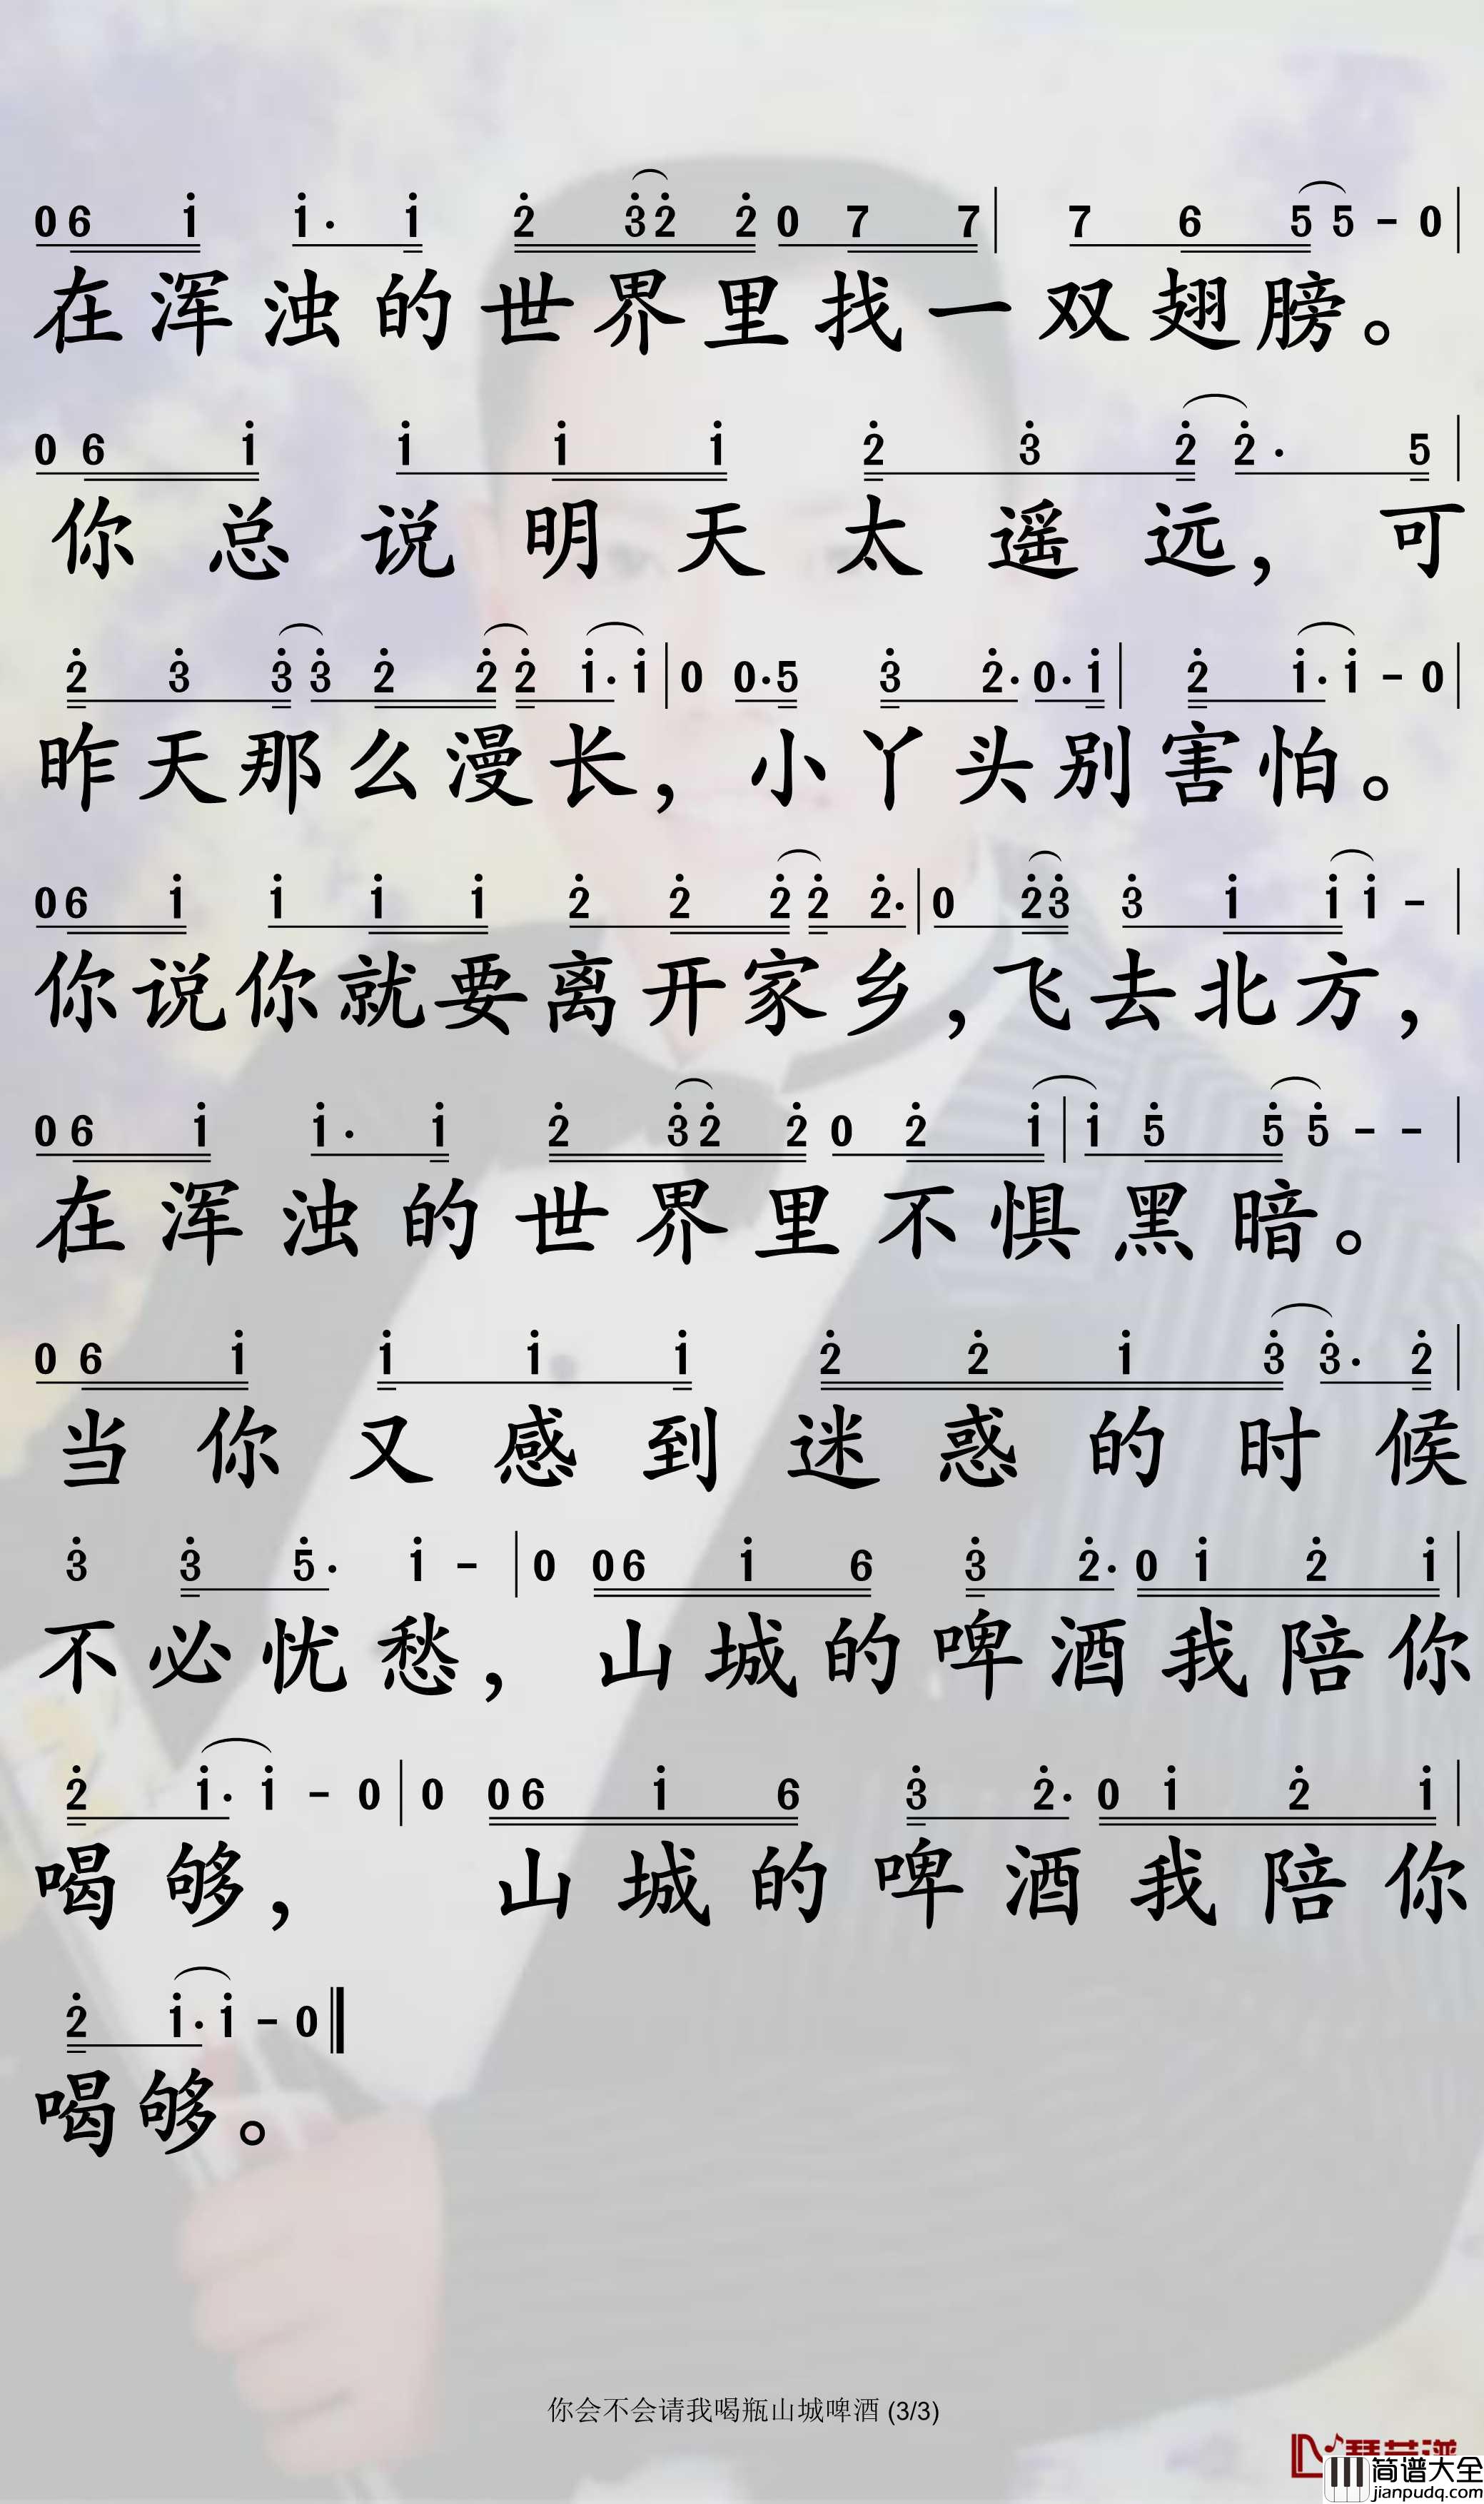 0 6 1 1· 1 2 3 2 2 0 7 7 | 7 6 5 5 - 0 |
在浑浊的世界里找一双翅膀。
0 6 1 1 1 1 2 3 2 2· 5 |
你总说明天太遥远，可
2 3 3 3 2 2 2 1· 1 | 0 0· 5 3 2· 0· 1 | 2 1· 1 - 0 |
昨天那么漫长，小丫头别害怕。
0 6 1 1 1 1 2 2 2 2 2· | 0 2 3 3 1 1 1 - |
你说你就要离开家乡，飞去北方，
0 6 1 1· 1 2 3 2 2 0 2 1 | 1 5 5 5 - - |
在浑浊的世界里不惧黑暗。
0 6 1 1 1 1 2 2 1 3 3· 2 |
当你又感到迷惑的时候
3 3 5· 1 - | 0 0 6 1 6 3 2· 0 1 2 1 |
不必忧愁，山城的啤酒我陪你
2 1· 1 - 0 | 0 0 6 1 6 3 2· 0 1 2 1 |
喝够，山城的啤酒我陪你
2 1· 1 - 0
喝够。
你会不会请我喝瓶山城啤酒 (3/3)
简谱大全
jianpudq.com